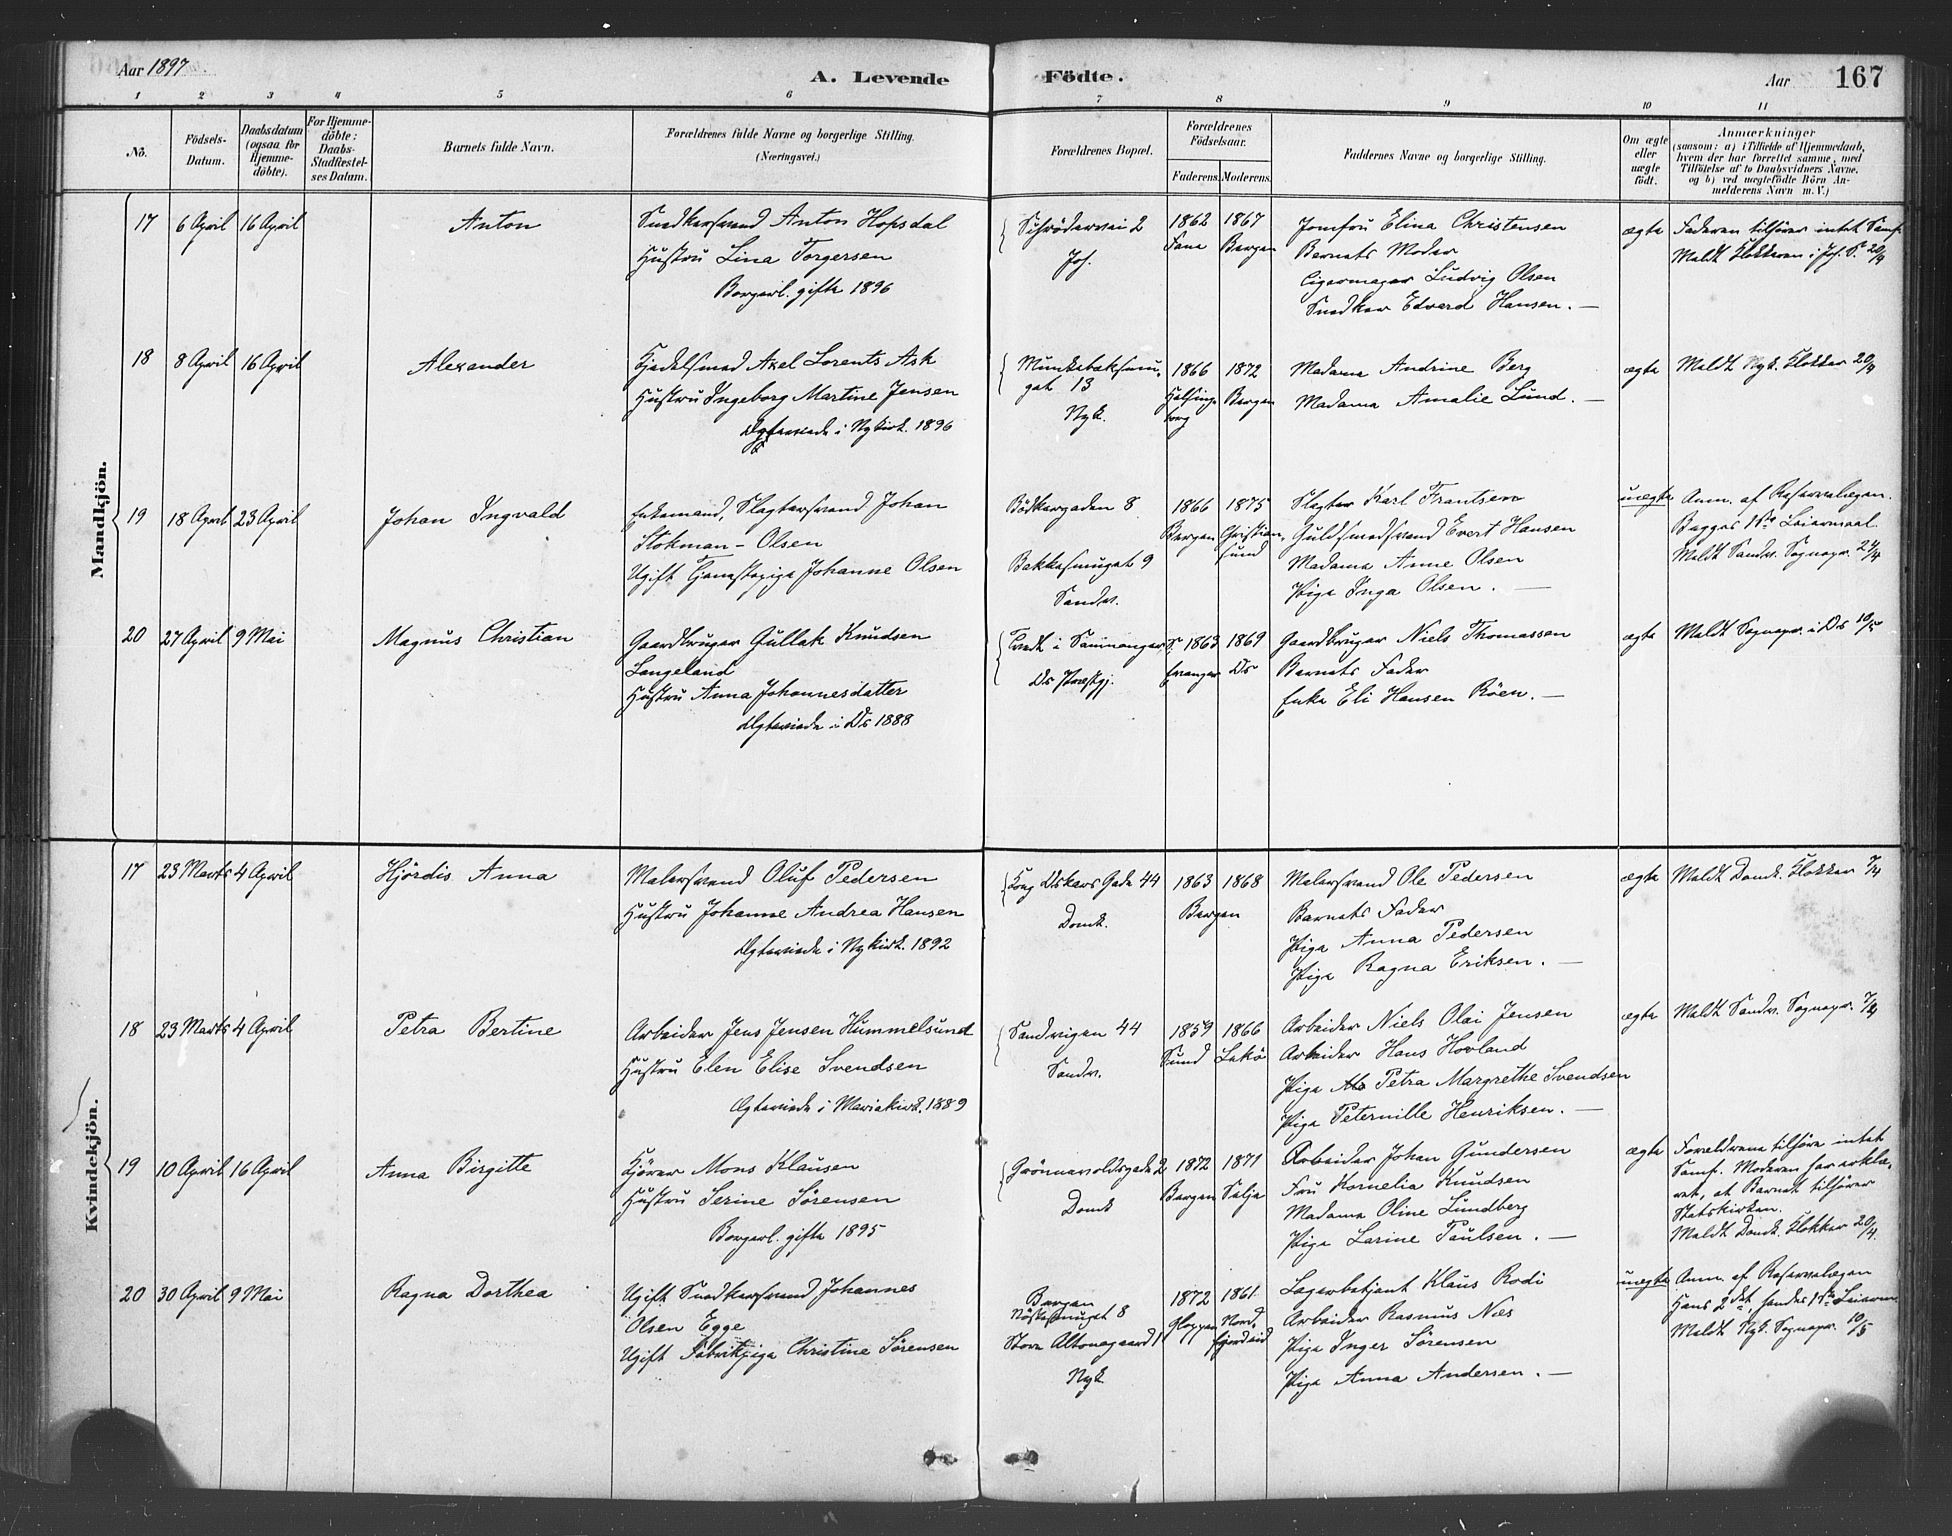 Aar 1897.
A. Levende Födte.
Aar 167
1 2 3 4 5 6 7 8 9 10 11
No.
Födsels-
Datum.
Daabsdatum
(ogsaa for
Hjemme-
döbte).
For Hjemme-
döbte:
Daabs-
Stadfæstel-
ses Datum.
Barnets fulde Navn.
Forældrenes fulde Navne og borgerlige Stilling.
(Næringsvei.)
Forældrenes Bopæl.
Forældrenes
Födselsaar.
Faderens. Moderens.
Faddernes Navne og borgerlige Stilling.
Om ægte
eller
uægte
födt.
Anmærkninger
(saasom: a) i Tilfælde af Hjemmedaab,
hvem der har forrettet samme, med
Tilföielse af to Daabsvidners Navne,
og b) ved uægtefödte Börn An-
melderens Navn m. V.)
Mandkjön.
17 6 April 16 April Anton
Snedkersvend Anton Hopsdal
Hustru Lina Torgersen
Borgerl. gifte 1896
Schrödersvei 2
Joh.
1862 1867
Fane Bergen
Jomfru Elina Christensen
Barnets Moder
Cigarmager Ludvig Olsen
Snedker Edvard Hansen. —
ægte
Faderen tilhører intet Samf.
Meldt Klokkeren i Joh. S. 20/4
18 8 April 16 April Alexander
Kjedelsmed Axel Lorents Ask
Hustru Ingeborg Martine Jensen
Ægteviede i Nykirk. 1896
Munkebæksmu-
get 13
Nyk.
1866 1872
Helsing- Bergen
borg
Madame Andrine Berg
Madame Amalie Lund. —
ægte
Meldt Nyk. Klokker 20/4
19 18 April 23 April Johan Ingvald
Enkemand, Slagtersvend Johan
Stokman-Olsen
Ugift Tjenestepige Johanne Olsen
Bödkergaden 8
Bakkesmuget 9
Sandv.
1866 1875
Bergen Christian-
sund
Slagter Karl Frantsen
Guldsmedsvend Evert Hansen
Madame Anne Olsen
Pige Inga Olsen. —
uægte
Anm. af Reservelægen.
Begges 1ste Leiermaal.
Meldt Sandv. Sognepr. 24/4
20 27 April 9 Mai Magnus Christian
Gaardbruger Gullak Knudsen
Langeland
Hustru Anna Johannesdatter
Ægteviede i Os 1888
Tvedt i Samnanger S.
Os Præstgj.
1863 1869
Evanger Os
Gaardbruger Niels Thomassen
Barnets Fader
Enke Eli Hansen Röen. —
ægte
Meldt Sognepr. i Os 10/5
Kvindekjön.
17 23 Marts 4 April Hjördis Anna
Malersvend Oluf Pedersen
Hustru Johanne Andrea Hansen
Ægteviede i Nykirk. 1892
Kong Oskars Gade 44
Domk.
1863 1868
Bergen
Malersvend Ole Pedersen
Barnets Fader
Pige Anna Pedersen
Pige Ragna Eriksen. —
ægte
Meldt Domk. Klokker 7/4
18 23 Marts 4 April Petra Bertine
Arbeider Jens Jensen Hummelsund
Hustru Elen Elise Svendsen
Ægteviede i Mariakirk. 1889
Sandvigen 44
Sandv.
1859 1866
Sund Lekö
Arbeider Niels Olai Jensen
Arbeider Hans Hovland
Pige Petra Margrethe Svendsen
Pige Peternille Henriksen. —
ægte
Meldt Sandv. Sognepr. 7/4
19 10 April 16 April Anna Birgitte
Kjörer Mons Klausen
Hustru Serine Sörensen
Borgerl. gifte 1895
Grönnevoldsgade 2
Domk
1872 1871
Bergen Selje
Arbeider Johan Gundersen
Fru Kornelia Knudsen
Madame Oline Lundberg
Pige Larine Paulsen. —
ægte
Forældrene tilhøre intet
Samf. Moderen har erklæ-
ret, at Barnet tilhører
Statskirken.
Meldt Domk. Klokker 20/4.
20 30 April 9 Mai Ragna Dorthea
Ugift Snedkersvend Johannes
Olsen Egge
Ugift Fabrikpige Christine Sörensen
Bergen
Nöstesmuget 8
Store Altonagaard 1
Nyk.
1872 1861
Gloppen Nord-
fjordeid
Lagerbetjent Klaus Rodi
Arbeider Rasmus Næs
Pige Inger Sörensen
Pige Anna Andersen. —
uægte
Anm. af Reservelægen
Hans 2det, hendes 1ste Leierm.
Meldt Nyk. Sognepr. 10/5